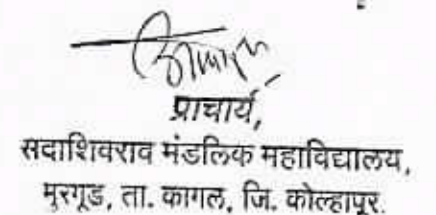 प्राचार्य,
सदाशिवराव मंडलिक महाविद्यालय,
मुरगूड, ता. कागल, जि. कोल्हापूर.